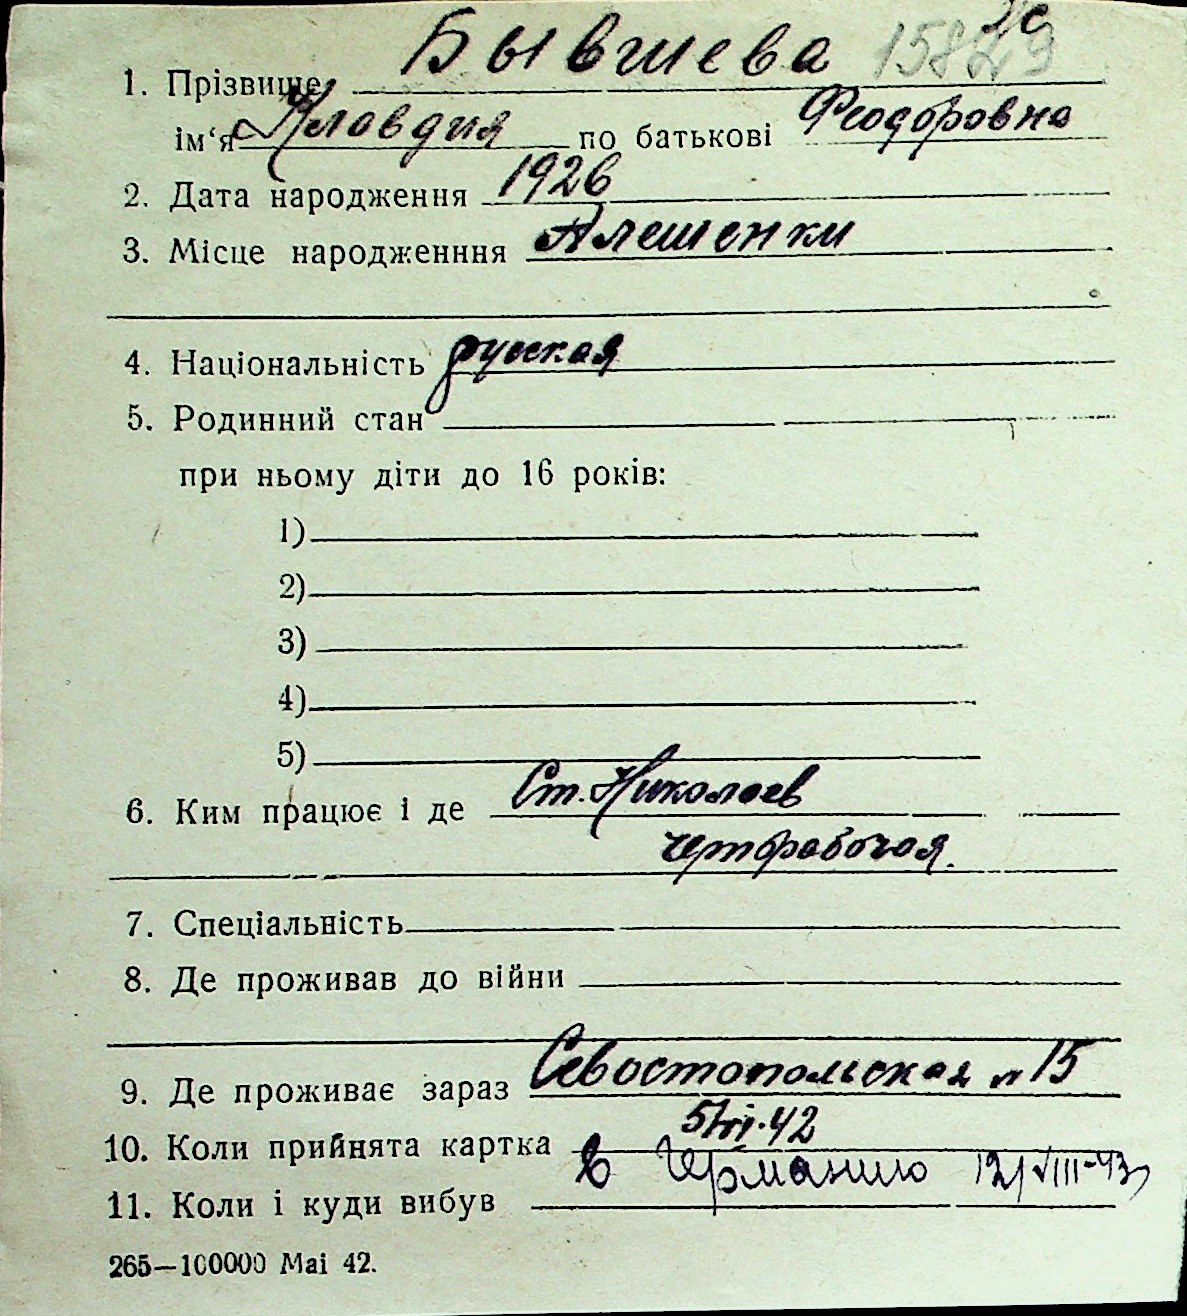 1. Прізвище Бывшева 15829
ім‘я Кловдия по батькові Феодоровна
2. Дата народження 1926
3. Місце народженння Алешенки
4. Національність русская
5. Родинний стан
при ньому діти до 16 років:
1)
2)
3)
4)
5)
6. Ким працює і де Ст. Николаев
чертрабочая.
7. Спеціальність
8. Де проживав до війни
9. Де проживає зараз Севостопольская n 15
10. Коли прийнята картка 5/VI-42
11. Коли і куди вибув в Германию 12/VIII-43
265—100000 Маі 42.